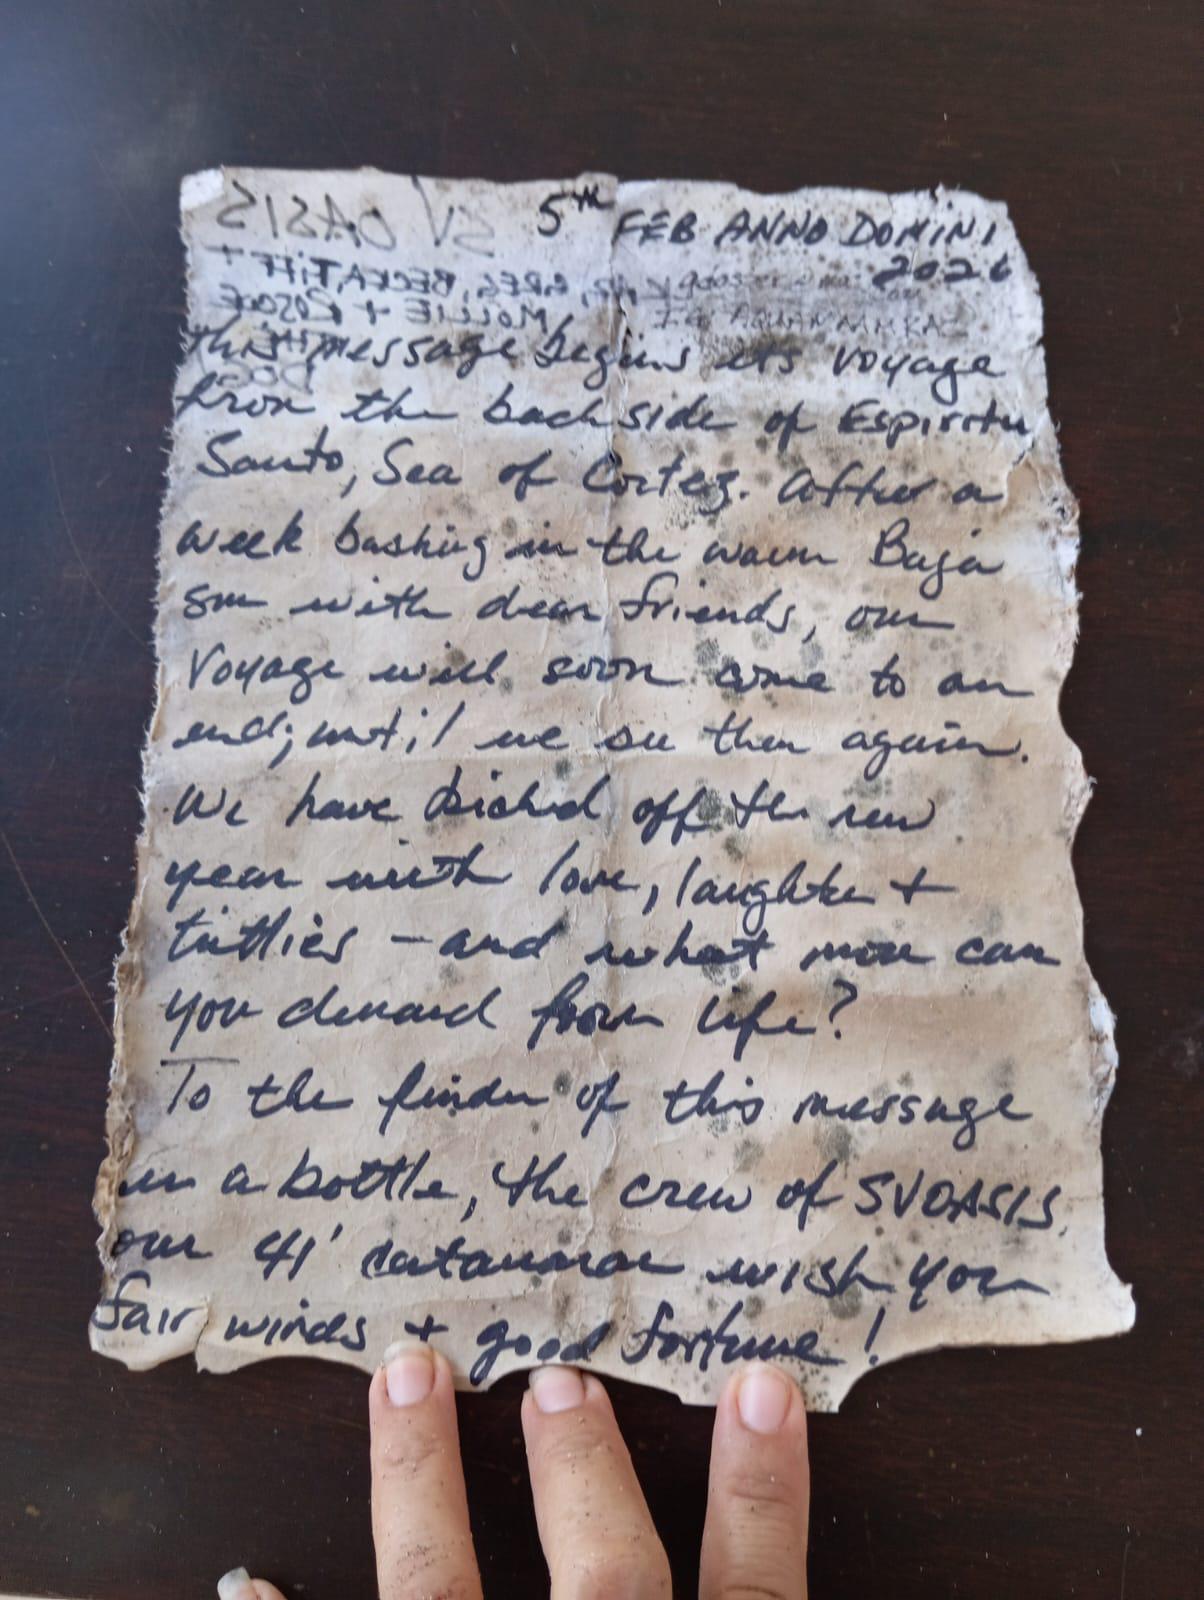 5TH FEB ANNO DOMINI
2026
SV OASIS
GREG, BECKA, TIFF +
MOLLIE + ROSCOE
THE
DOG
this message begins its voyage
from the backside of Espiritu
Santo, Sea of Cortez. After a
week basking in the warm Baja
sun with dear friends, our
voyage will soon come to an
end; until we see them again.
We have kicked off the new
year with love, laughter +
titties - and what more can
you demand from life?
To the finder of this message
in a bottle, the crew of SVOASIS,
our 41' catamaran wish you
fair winds + good fortune!